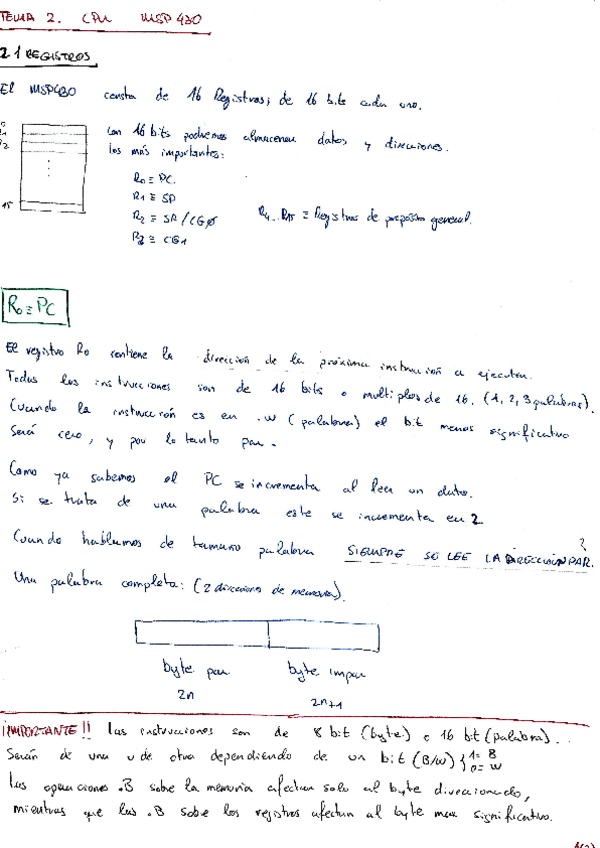 TEMA 2. CPU MSP430
2.1 REGISTROS
El MSP430 consta de 16 Registros, de 16 bits cada uno.
Con 16 bits podremos almacenar datos y direcciones.
los más importantes:
R0 ≡ PC.
R1 ≡ SP
R2 ≡ SR/CG0
R4...R15 ≡ Registros de propósito general.
R3 ≡ CG1
2
15
R0 ≡ PC
El registro R0 contiene la dirección de la próxima instrucción a ejecutar.
Todas las instrucciones son de 16 bits o multiplos de 16. (1, 2, 3 palabras).
Cuando la instrucción es en .W (palabra) el bit menos significativo
Será cero, y por lo tanto par.
Como ya sabemos el PC se incrementa al leer un dato.
Si se trata de una palabra este se incrementa en 2
Cuando hablamos de tamaño palabra SIEMPRE SE LEE LA DIRECCIÓN PAR.
?
Una palabra completa: (2 direcciones de memoria).
byte par byte impar
2n 2n+1
¡IMPORTANTE!! Las instrucciones son de 8 bit (byte) o 16 bit (palabra).
Serán de una u de otra dependiendo de un bit (B/W) { 1= B
0= W
Las operaciones .B sobre la memoria afectan solo al byte direccionado,
mientras que las .B sobe los registros afectan al byte mas significativo.